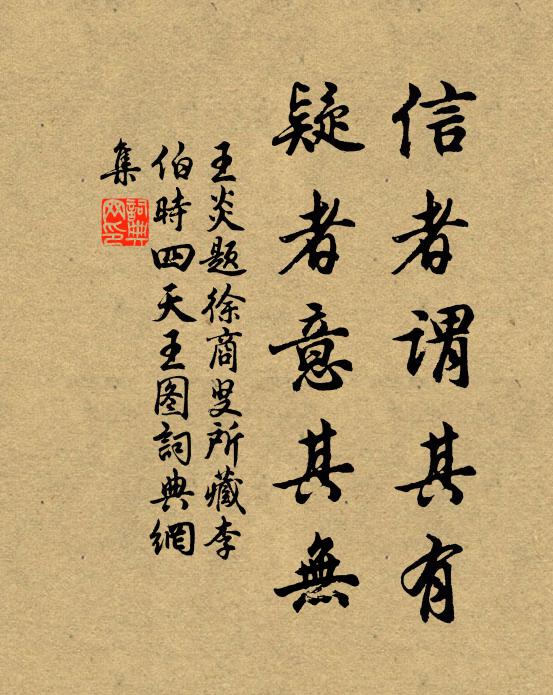 信者謂其有
疑者意其無
王炎題徐商叟所藏李
伯時四天王图詞典網
集
詞典
网印